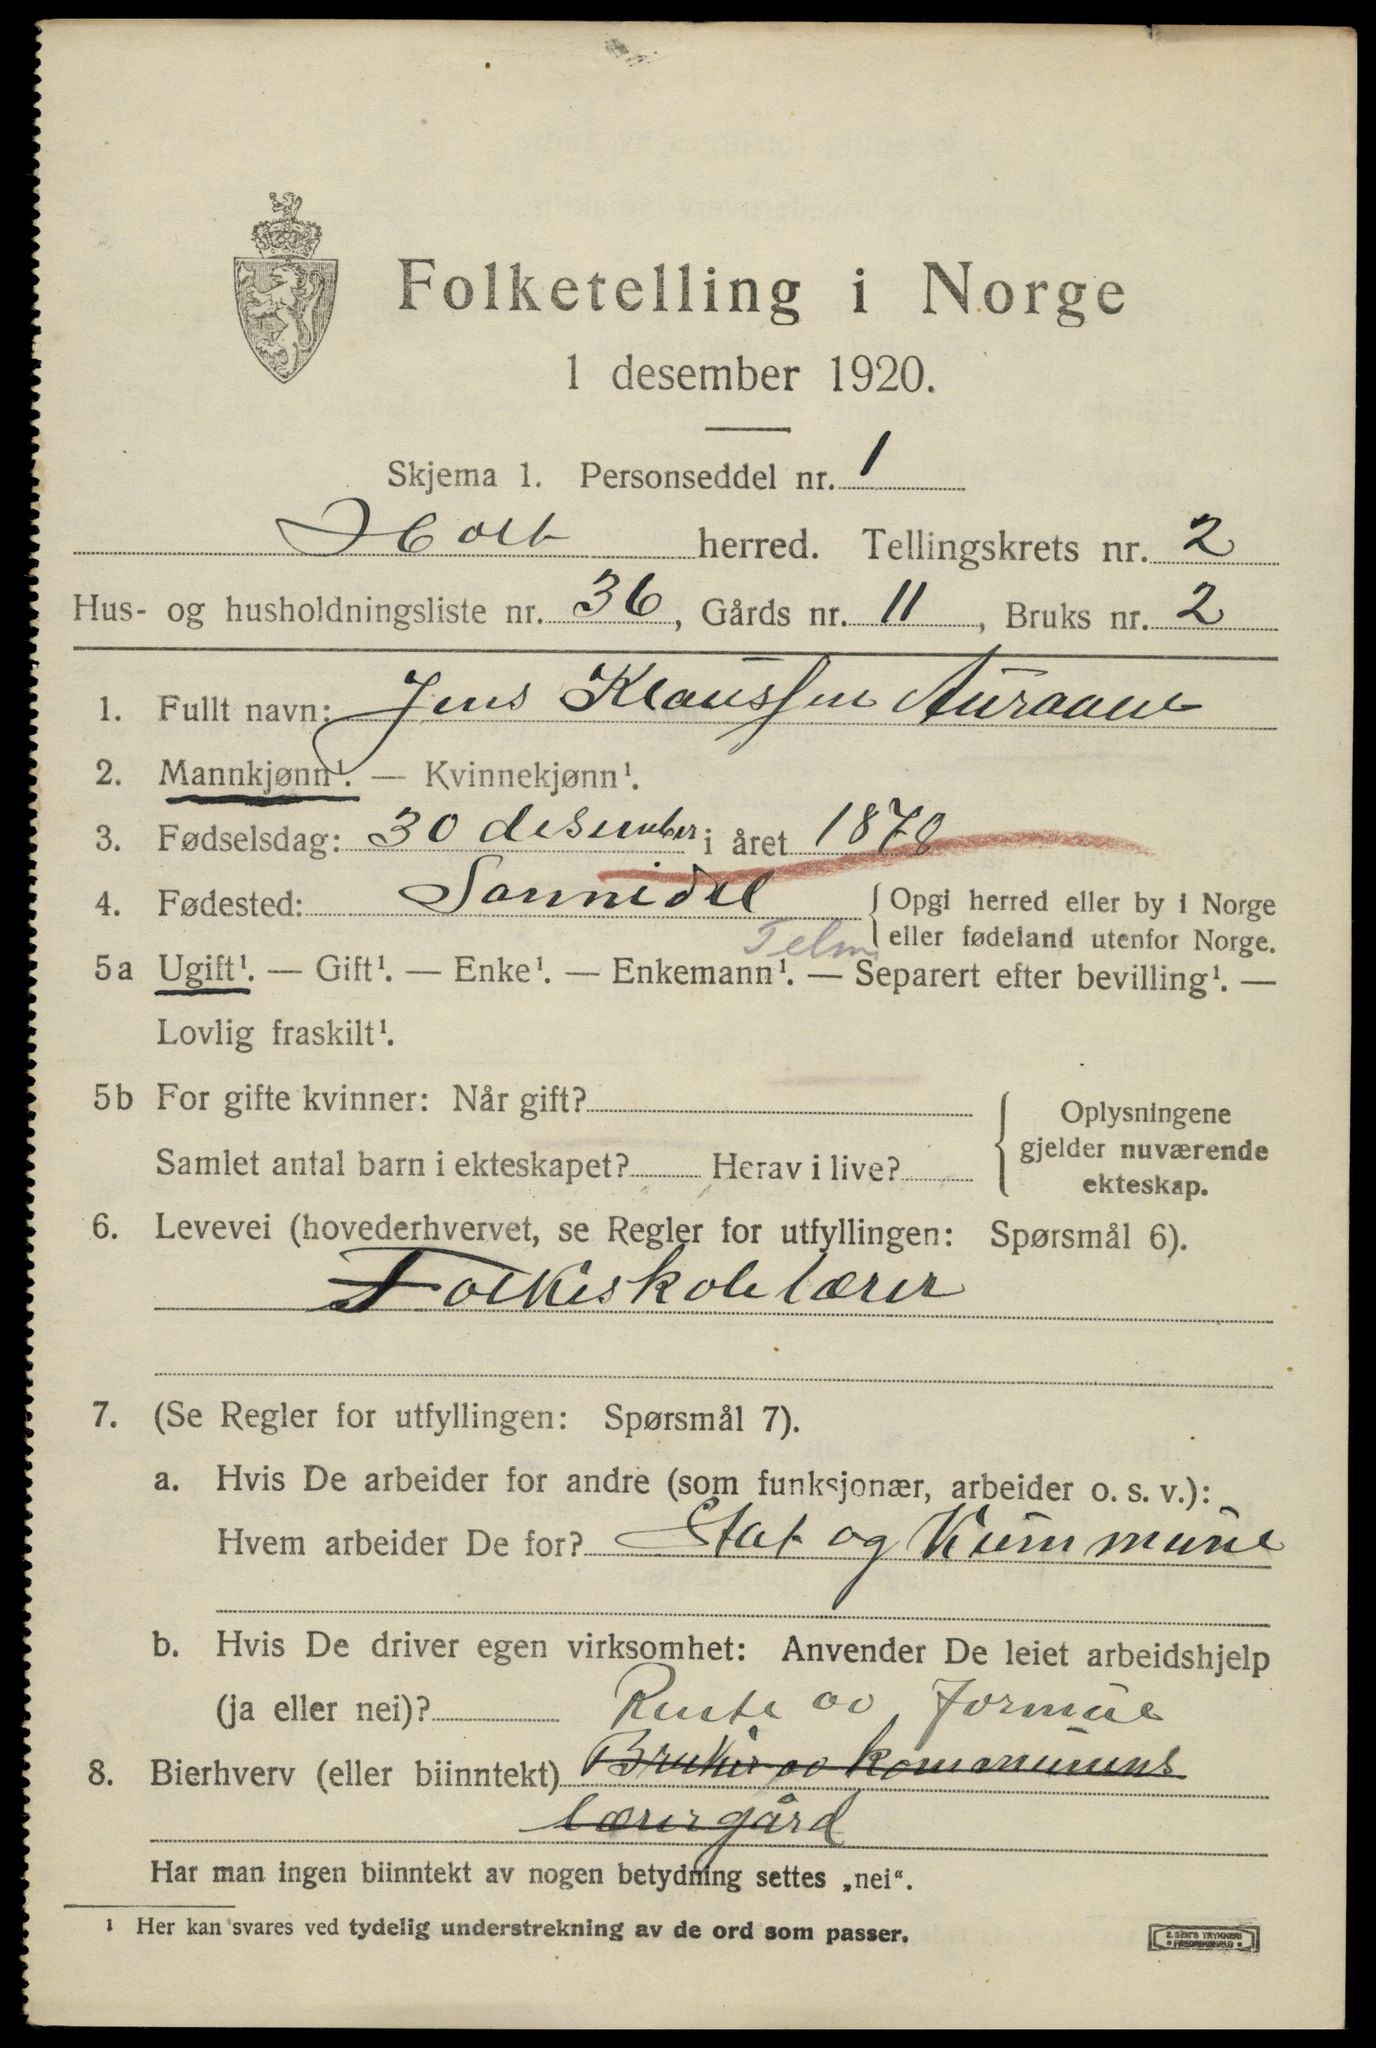 Folketelling i Norge
1 desember 1920.
Skjema 1. Personseddel nr. 1
Holt herred. Tellingskrets nr. 2
Hus- og husholdningsliste nr. 36, Gårds nr. 11, Bruks nr. 2
1. Fullt navn: Jens Klaussen Auraane
2. Mannkjønn¹. — Kvinnekjønn¹.
3. Fødselsdag: 30 desember i året 1878
4. Fødested: Sannidel { Opgi herred eller by i Norge
eller fødeland utenfor Norge.
Telm
5a Ugift¹. — Gift¹. — Enke¹. — Enkemann¹. — Separert efter bevilling¹. —
Lovlig fraskilt¹.
5b For gifte kvinner: Når gift?
Samlet antal barn i ekteskapet? Herav i live?
{ Oplysningene
gjelder nuværende
ekteskap.
6. Levevei (hovederhvervet, se Regler for utfyllingen: Spørsmål 6).
Folkeskolelærer
7. (Se Regler for utfyllingen: Spørsmål 7).
a. Hvis De arbeider for andre (som funksjonær, arbeider o. s. v.):
Hvem arbeider De for? Stat og Kummune
b. Hvis De driver egen virksomhet: Anvender De leiet arbeidshjelp
(ja eller nei)?
Rente av formue
8. Bierhverv (eller biinntekt) Bruker av kommunens
lærergård
Har man ingen biinntekt av nogen betydning settes „nei“.
¹ Her kan svares ved tydelig understrekning av de ord som passer.
E. SEM'S TRYKKERI
• FREDRIKSHALD •